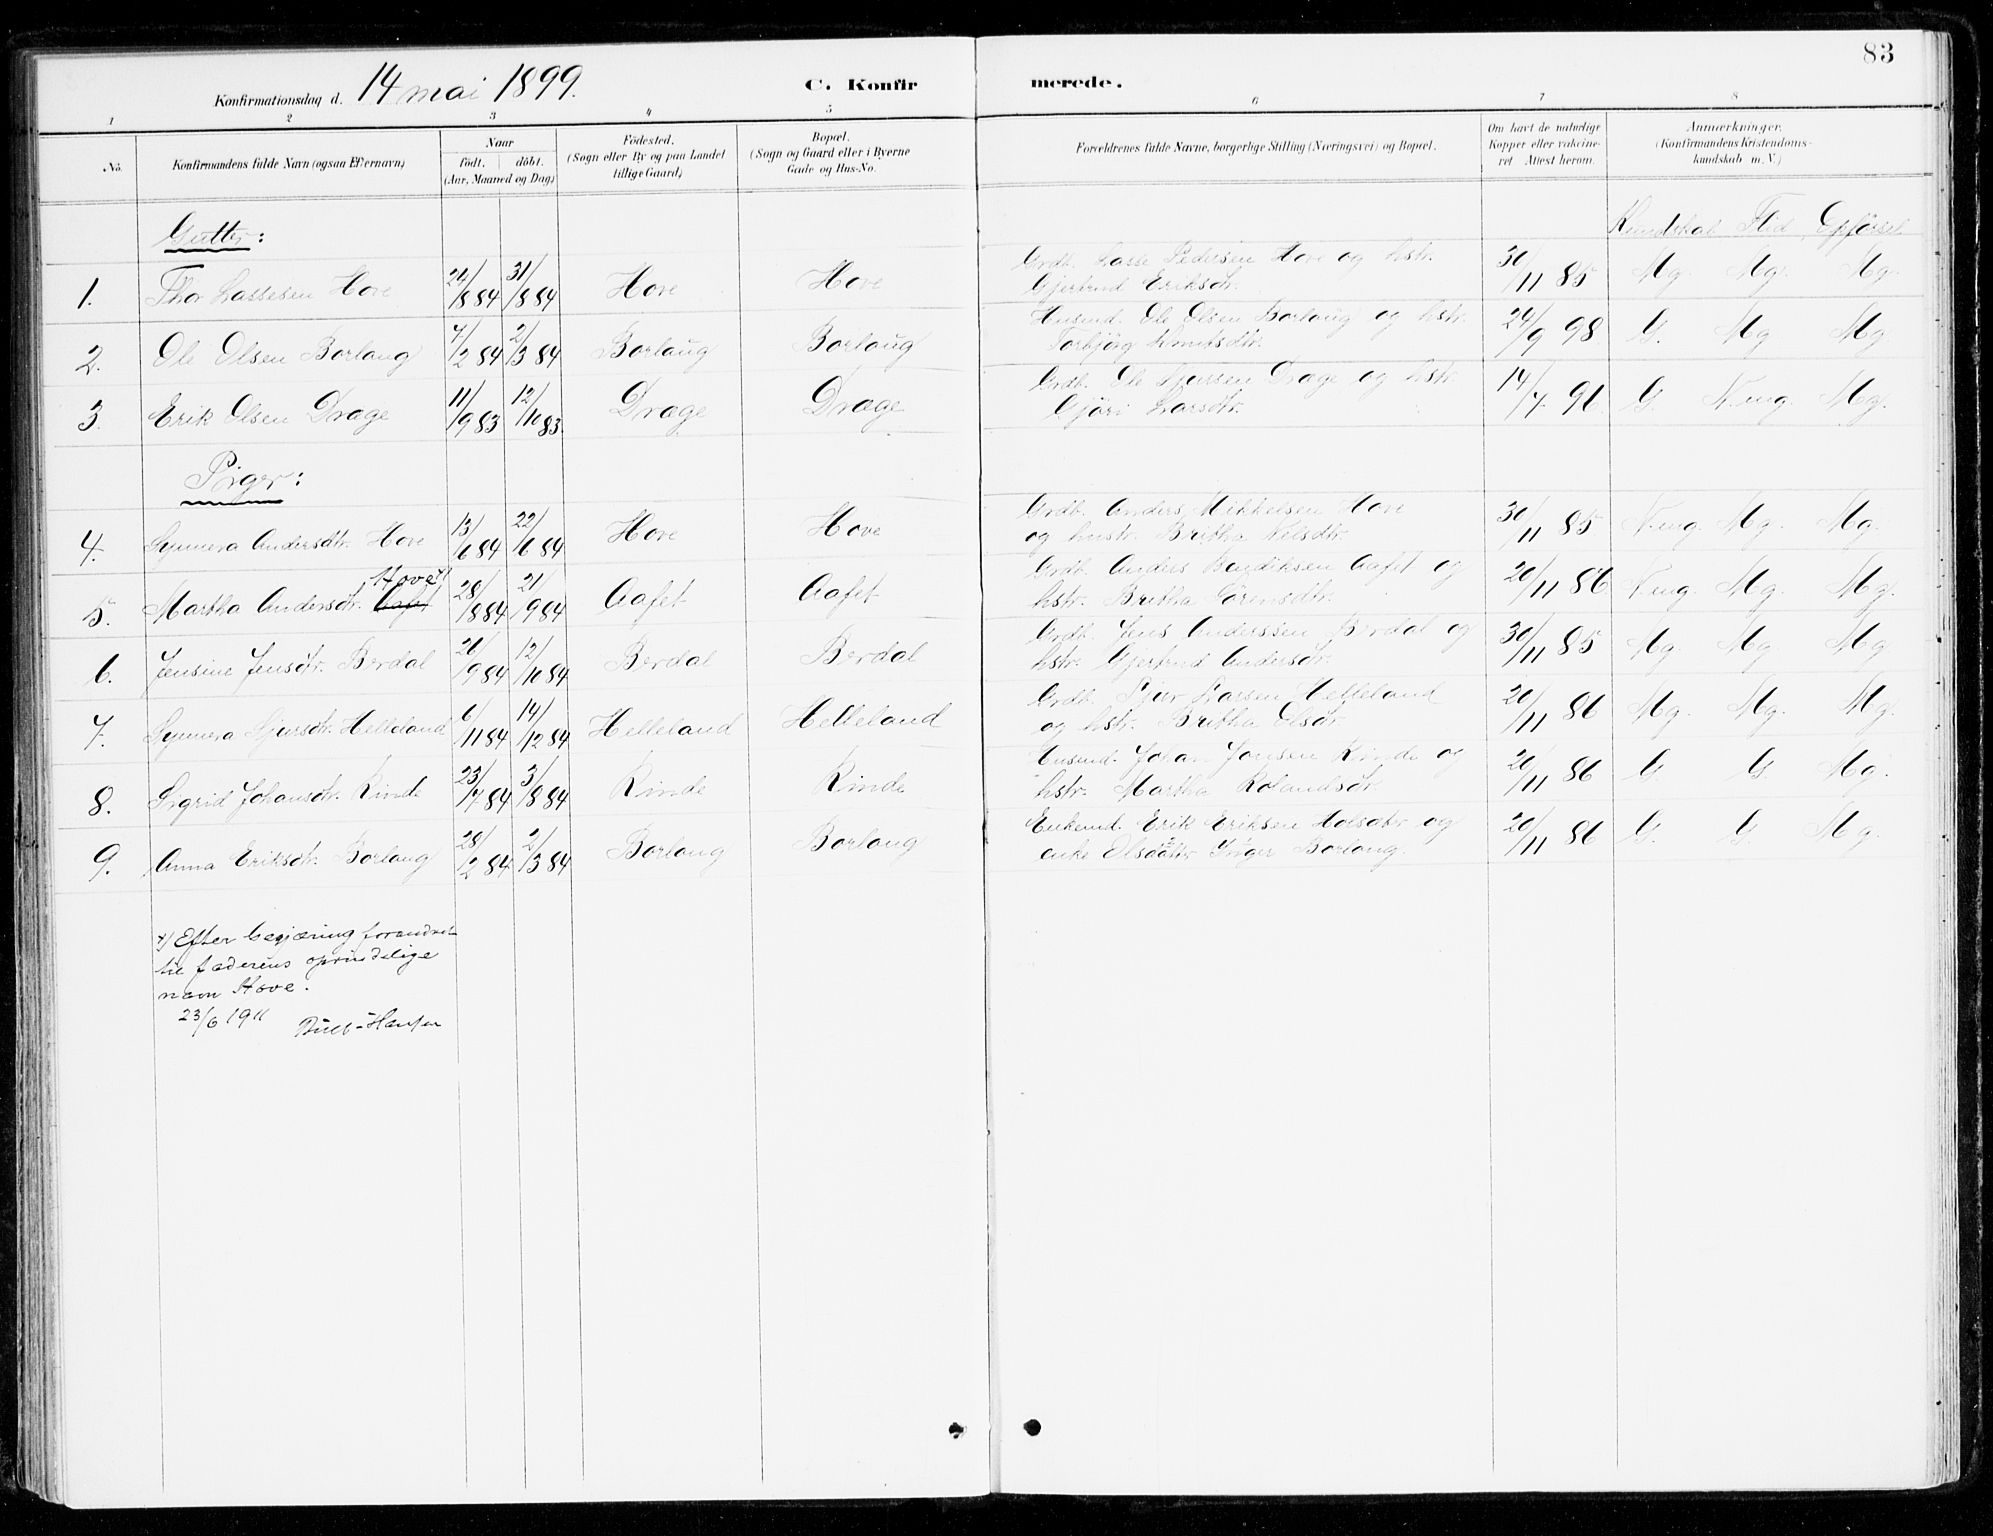 83
Konfirmationsdag d. 14 mai 1899. C. Konfir merede.
1 2 3 4 5 6 7 8
No. Konfirmandens fulde Navn (ogsaa Efternavn) Naar født. døbt. (Aar, Maaned og Dag) Fødested. (Sogn eller By og paa Landet tillige Gaard) Bopæl. (Sogn og Gaard eller i Byerne Gade og Hus-No. Forældrenes fulde Navne, borgerlige Stilling (Næringsvei) og Bopæl. Om havt de naturlige Kopper eller vakcineret Attest herom. Anmærkninger. (Konfirmandens Kristendomskundskab m. V.)
Gutter: Kundskab Flid Opførsel
1. Thor Lassesen Hove 24/8 84 31/8 84 Hove Hove Grdb. Lasse Pedersen Hove og hstr. Gjertrud Eriksdtr. 30/11 85 Mg. Mg. Mg.
2. Ole Olsen Borlaug 7/2 84 2/3 84 Borlaug Borlaug Husmd. Ole Olsen Borlaug og hstr. Torbjørg Knutsdtr. 24/9 98 G. Mg Mg
3. Erik Olsen Drage 11/9 83 12/10 83 Drage Drage Grdb. Ole Sjursen Drage og hstr. Gjøri Larsdtr. 14/7 96 G. N.mg. Mg.
Piger:
4. Synneva Andersdtr. Hove 13/6 84 22/6 84 Hove Hove Grdb. Anders Mikkelsen Hove og hustr. Britha Nelsdtr. 30/11 85 N.mg. Mg. Mg.
5. Martha Andersdtr. Aafet Hove x) 28/8 84 21/9 84 Aafet Aafet Grdb. Anders Bendiksen Aafet og hstr. Britha Sørensdtr. 20/11 86 N.mg. Mg. Mg.
6. Jensine Jensdtr. Berdal 20/9 84 12/10 84 Berdal Berdal Grdb. Jens Anderssen Berdal og hstr. Gjertrud Andersdtr. 30/11 85 Mg. Mg. Mg
7. Synneva Sjursdtr. Helleland 6/11 84 14/12 84 Helleland Helleland Grdb. Sjur Larsen Helleland og hstr. Britha Olsdtr. 20/11 86 Mg. Mg. Mg.
8. Sigrid Johansdtr. Rinde 23/7 84 3/8 84 Rinde Rinde Husmd. Johan Jonsen Rinde og hstr. Martha Rolandsdtr. 20/11 86 G G. Mg.
9. Anna Eriksdtr. Borlaug 28/2 84 2/3 84 Borlaug Borlaug Enkemd. Erik Eriksen og enke Olsdatter Inger Borlaug. 20/11 86 G. G. Mg.
x) Efter begjæring forandret
til faderens oprindelige
navn Hove.
23/6 1911 Bull-Hansen